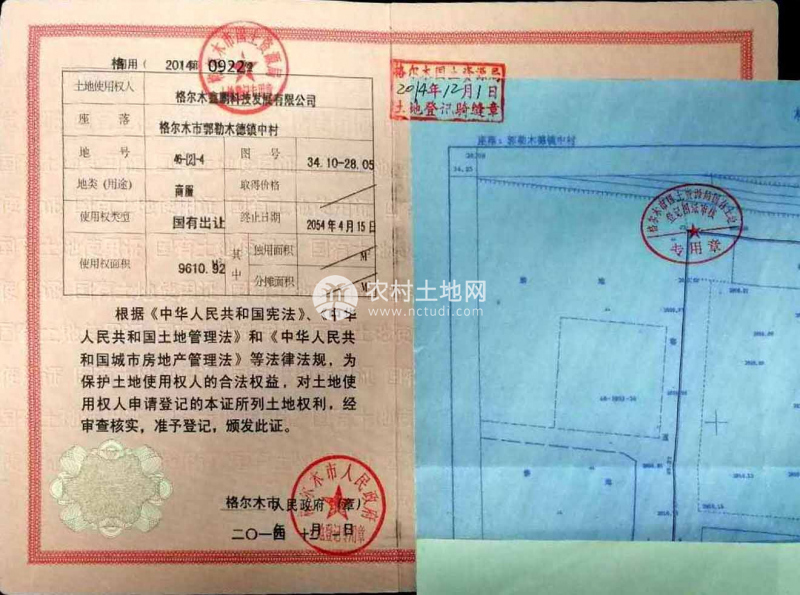 格用( 2014 09229
土地使用权人 格尔木鑫鹏科技发展有限公司
座 落 格尔木市郭勒木德镇中村
地 号 46-(2)-4 图 号 34.10-28.05
地类(用途) 商服 取得价格
使用权类型 国有出让 终止日期 2054年4月15日
使用权面积 9610.92 M² 其中 独用面积 M²
分摊面积 M²
根据《中华人民共和国宪法》、《中华
人民共和国土地管理法》和《中华人民共
和国城市房地产管理法》等法律法规,为
保护土地使用权人的合法权益,对土地使
用权人申请登记的本证所列土地权利,经
审查核实,准予登记,颁发此证。
格尔木市人民政府(章)
二〇一四年十二月一日
格尔木市国土资源局
土地登记专用章
格尔木市人民政府
格尔木国土资源局
2014年12月1日
土地登记骑缝章
座落:郭勒木德镇中村
28.05
专用章
农村土地网
www.nctudi.com